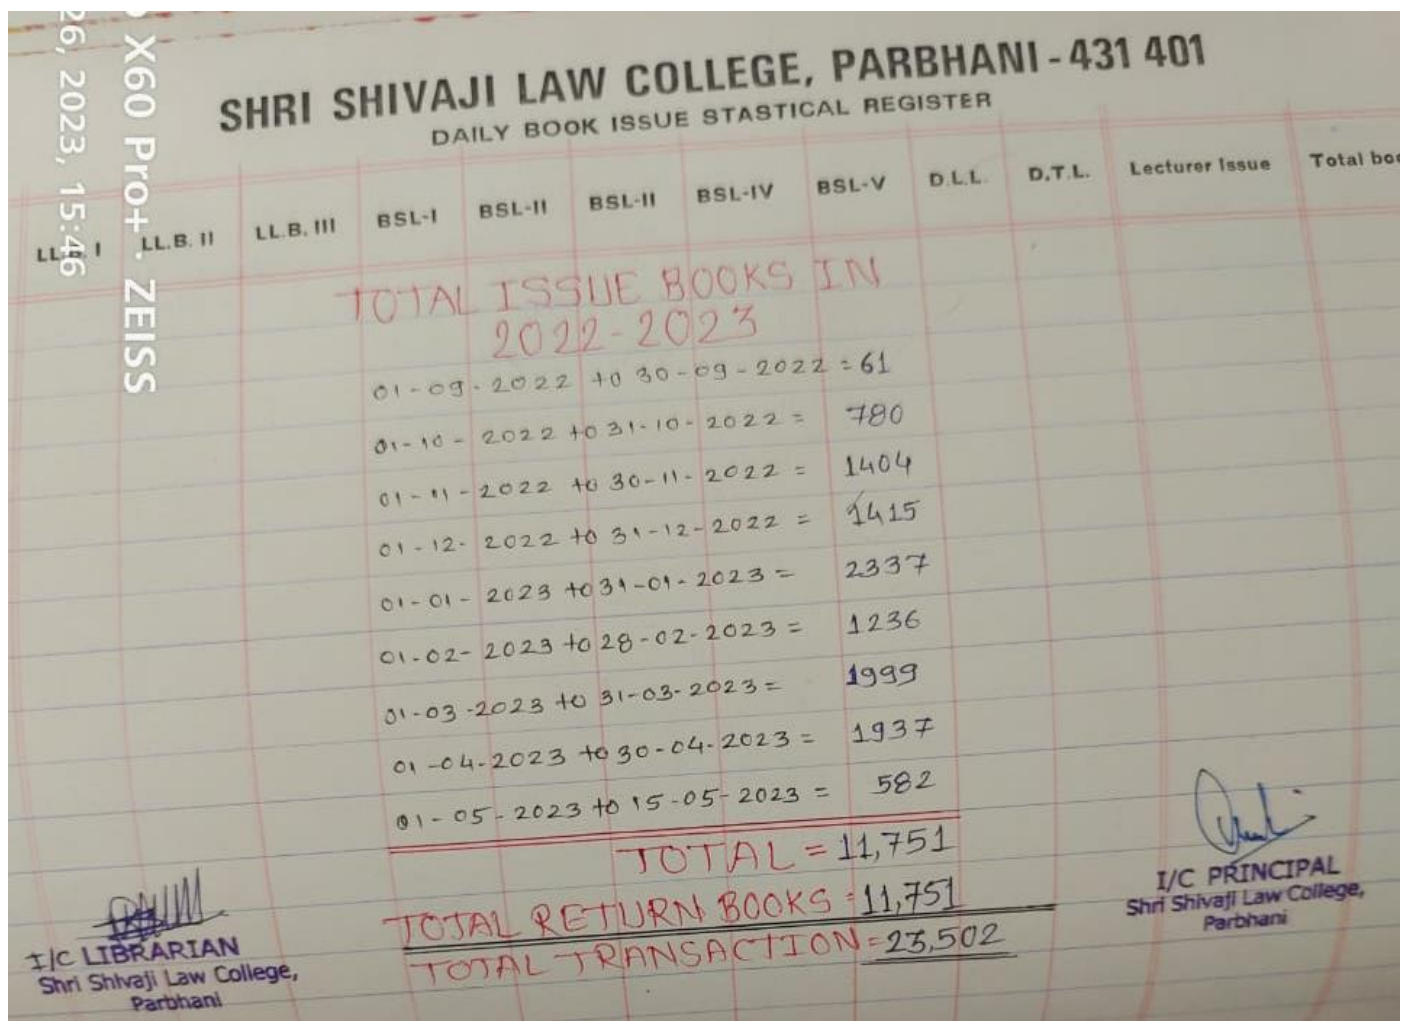 26, 2023, 15:46
X60 Pro+. ZEISS
SHRI SHIVAJI LAW COLLEGE, PARBHANI - 431 401
DAILY BOOK ISSUE STASTICAL REGISTER
LL.B. I LL.B. II LL.B. III BSL-I BSL-II BSL-II BSL-IV BSL-V D.L.L. D.T.L. Lecturer Issue Total boo
TOTAL ISSUE BOOKS IN
2022-2023
01-09-2022 to 30-09-2022 = 61
01-10-2022 to 31-10-2022 = 780
01-11-2022 to 30-11-2022 = 1404
01-12-2022 to 31-12-2022 = 1415
01-01-2023 to 31-01-2023 = 2337
01-02-2023 to 28-02-2023 = 1236
01-03-2023 to 31-03-2023 = 1999
01-04-2023 to 30-04-2023 = 1937
01-05-2023 to 15-05-2023 = 582
TOTAL = 11,751
TOTAL RETURN BOOKS = 11,751
TOTAL TRANSACTION = 23,502
I/C LIBRARIAN
Shri Shivaji Law College,
Parbhani
I/C PRINCIPAL
Shri Shivaji Law College,
Parbhani